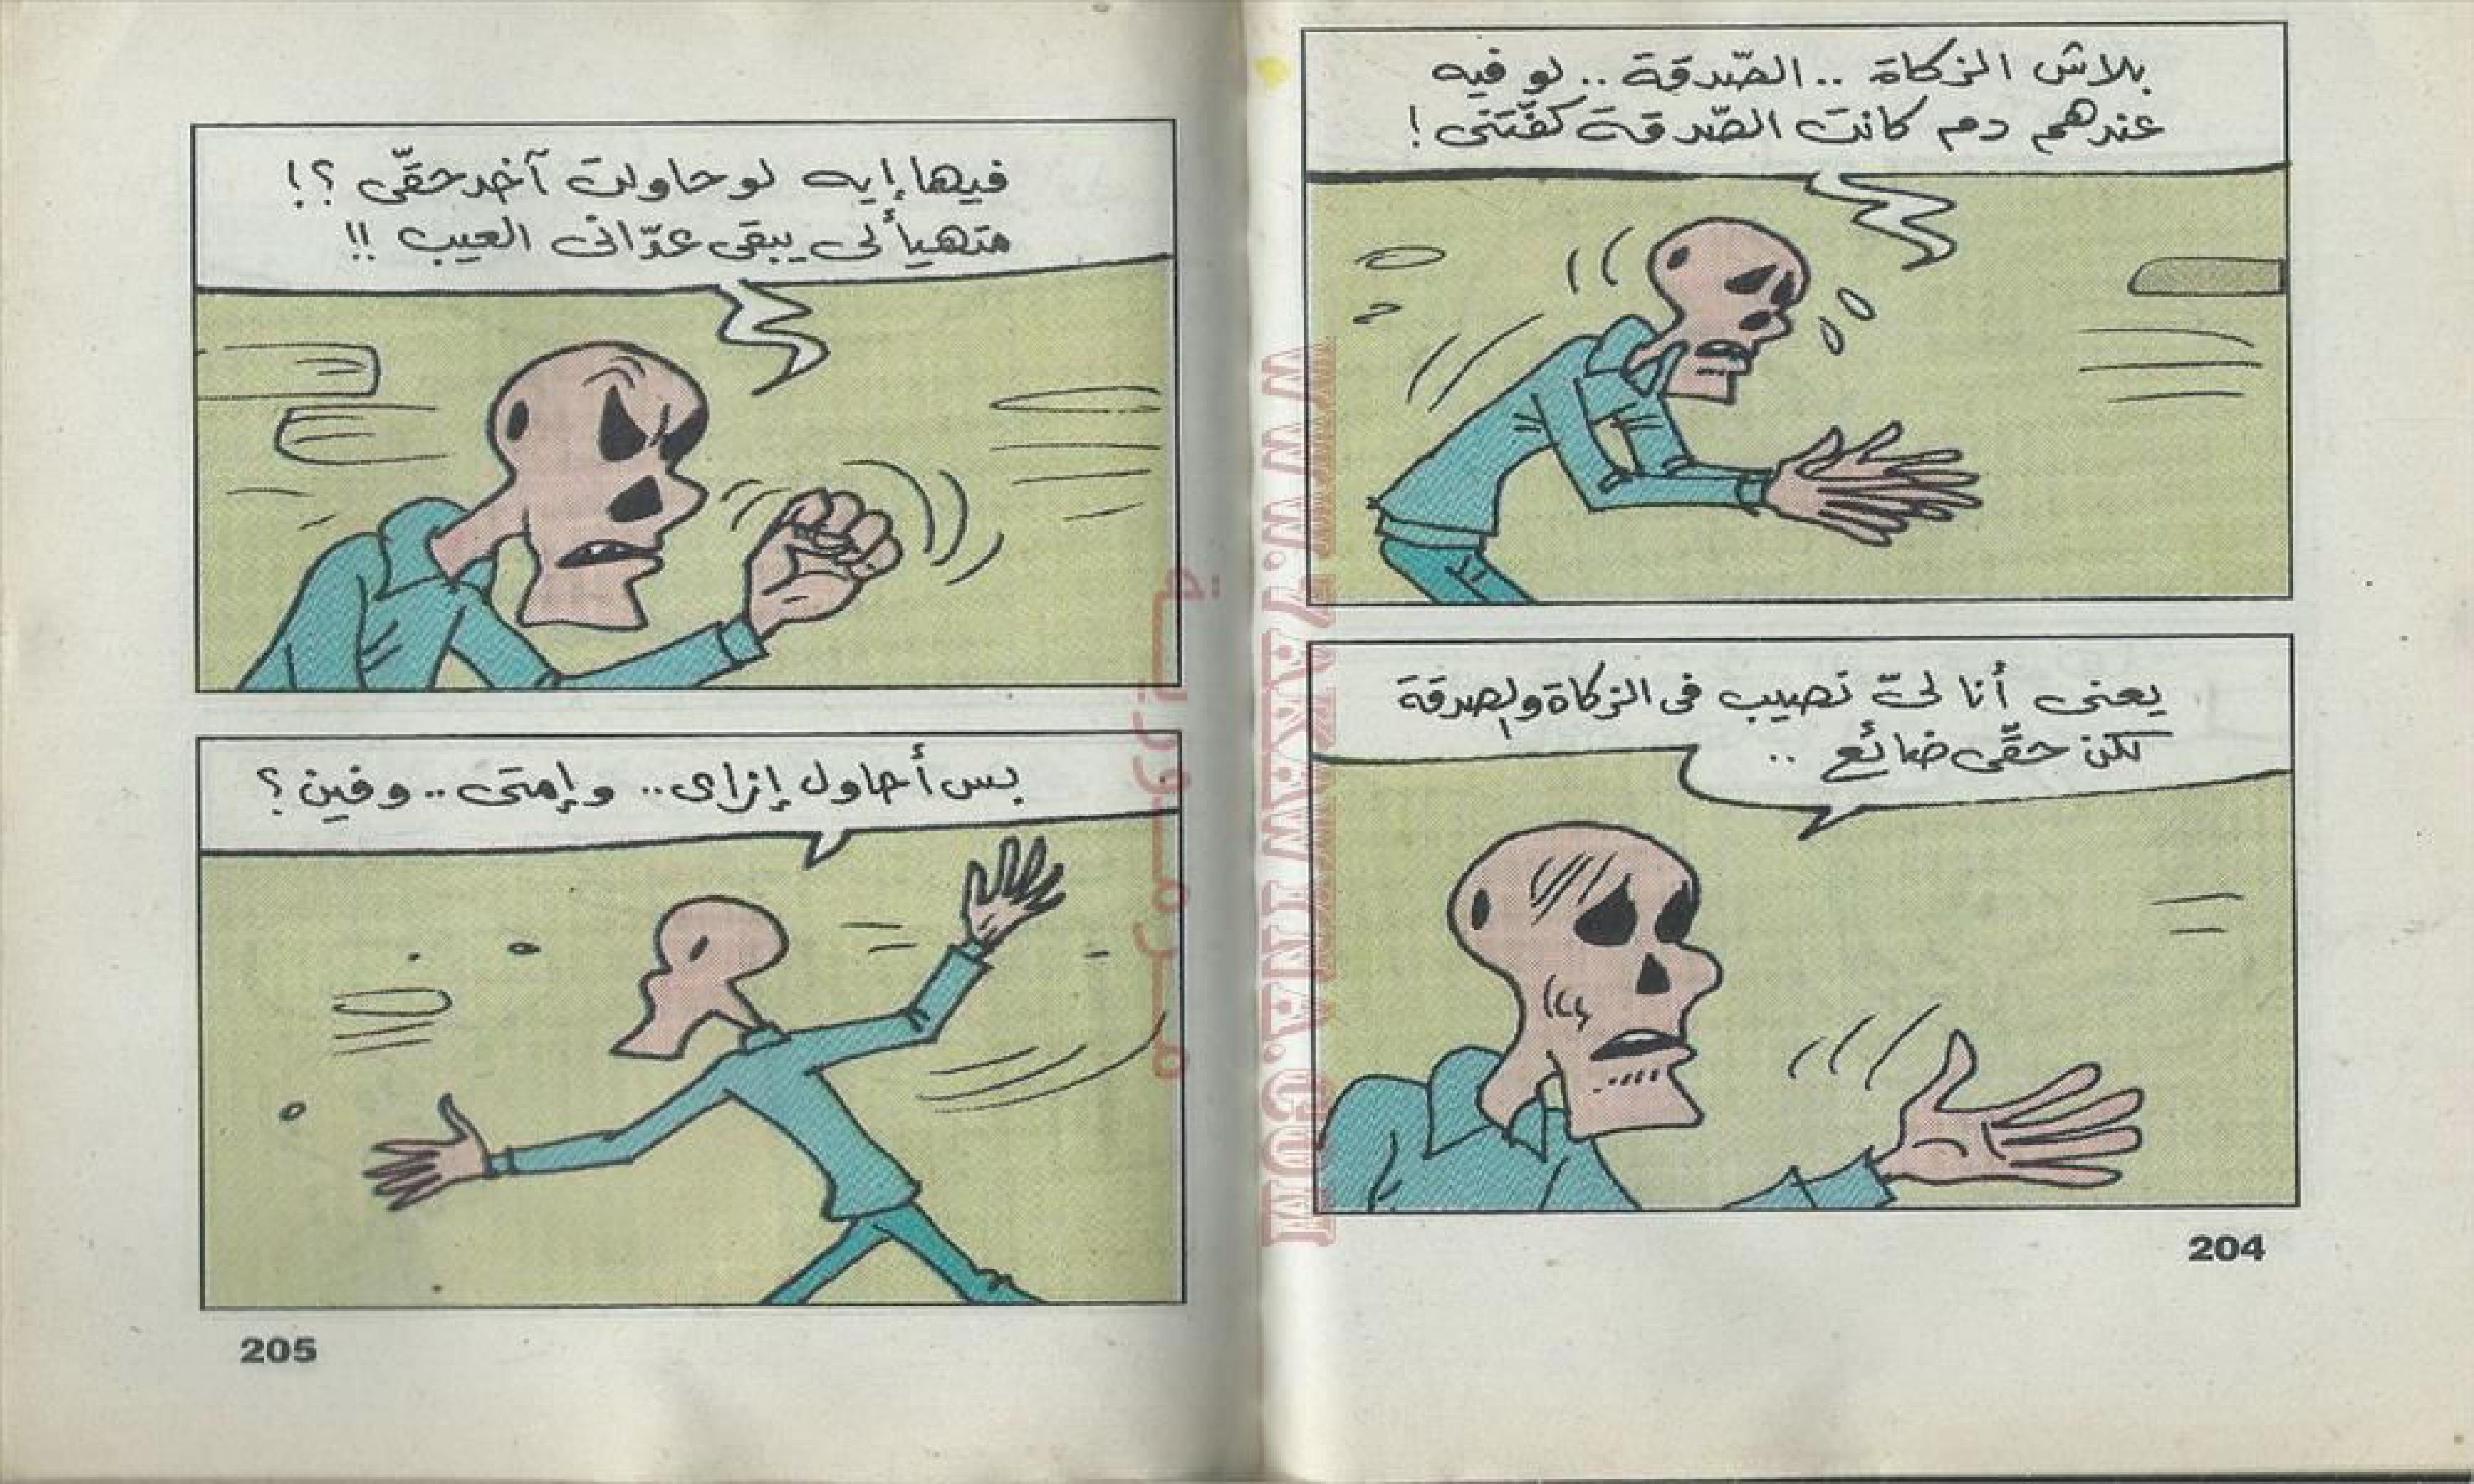 بلاش الزكاة .. الصّدقة .. لو فيه
عندهم دم كانت الصّدقة كفّتنى !
يعنى أنا لىّ نصيب فى الزكاة والصدقة
لكن حقّى ضائع ..
204
فيها إيه لو حاولت آخد حقّى ؟!
متهيألى يبقى عدّانى العيب !!
بس أحاول إزاى .. وإمتى .. وفين ؟
205